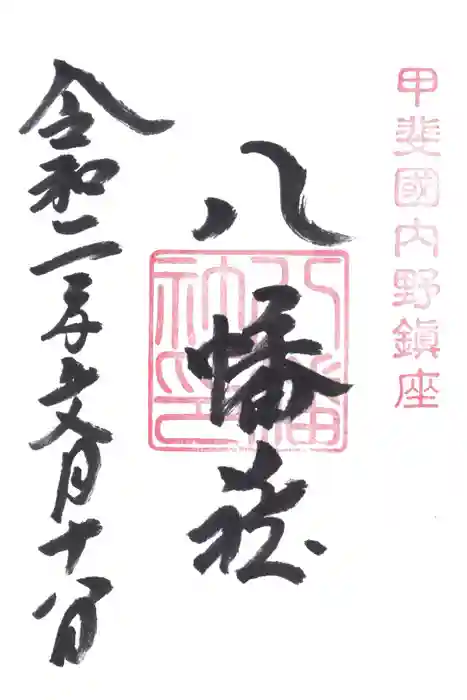 甲斐國内野鎮座
八幡社
令和二年文月十八日